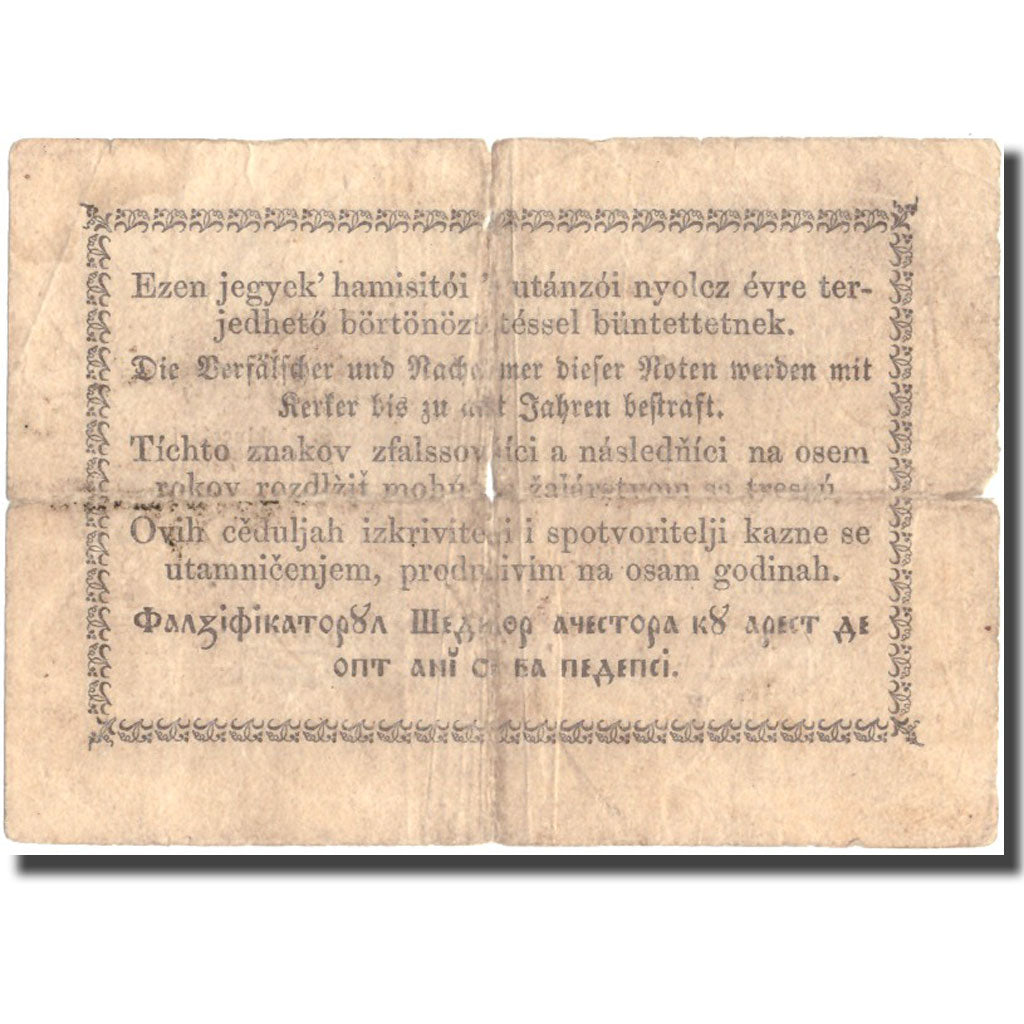 Ezen jegyek’ hamisitói ’ utánzói nyolcz évre ter-
jedhető börtönöztetéssel büntettetnek.
Die Verfälscher und Nachahmer dieser Noten werden mit
Kerker bis zu acht Jahren bestraft.
Tíchto znakov zfalssovníci a následňíci na osem
rokov rozdlžiť mohú žalárstvom sa trescú.
Ovih cěduljah izkrivitelji i spotvoritelji kazne se
utamničenjem, produživim na osam godinah.
Фалꙁіфікаторꙋл Шед ачестора кꙋ арест де
опт анĭ с ва педепсі.